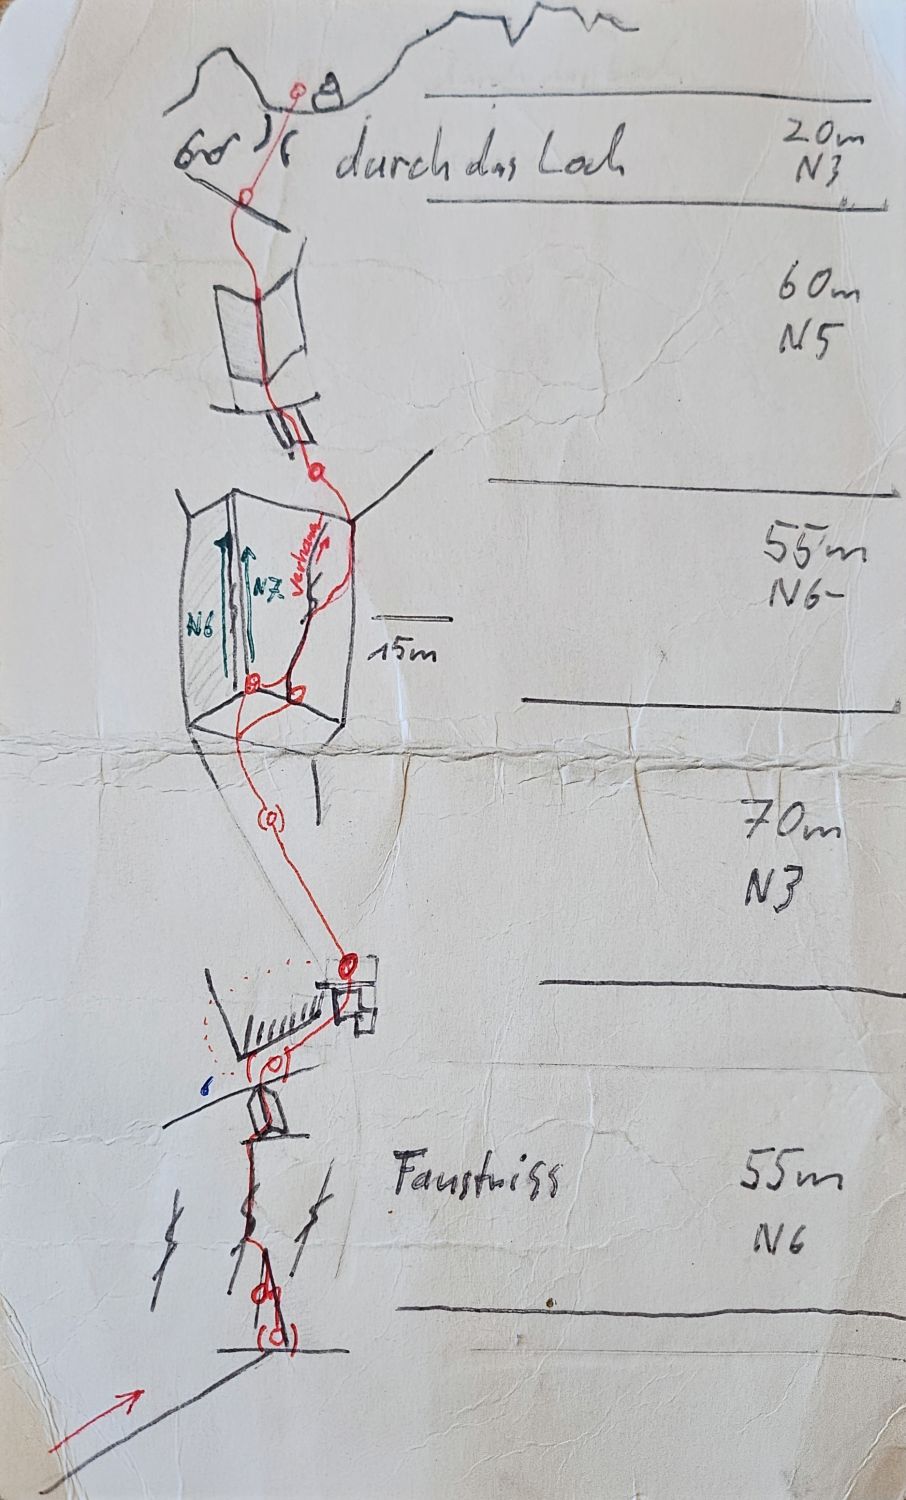 durch das Loch
20m
N3
60m
N5
55m
N6-
verhauer
N7
N6
15m
70m
N3
6
Faustriss
55m
N6